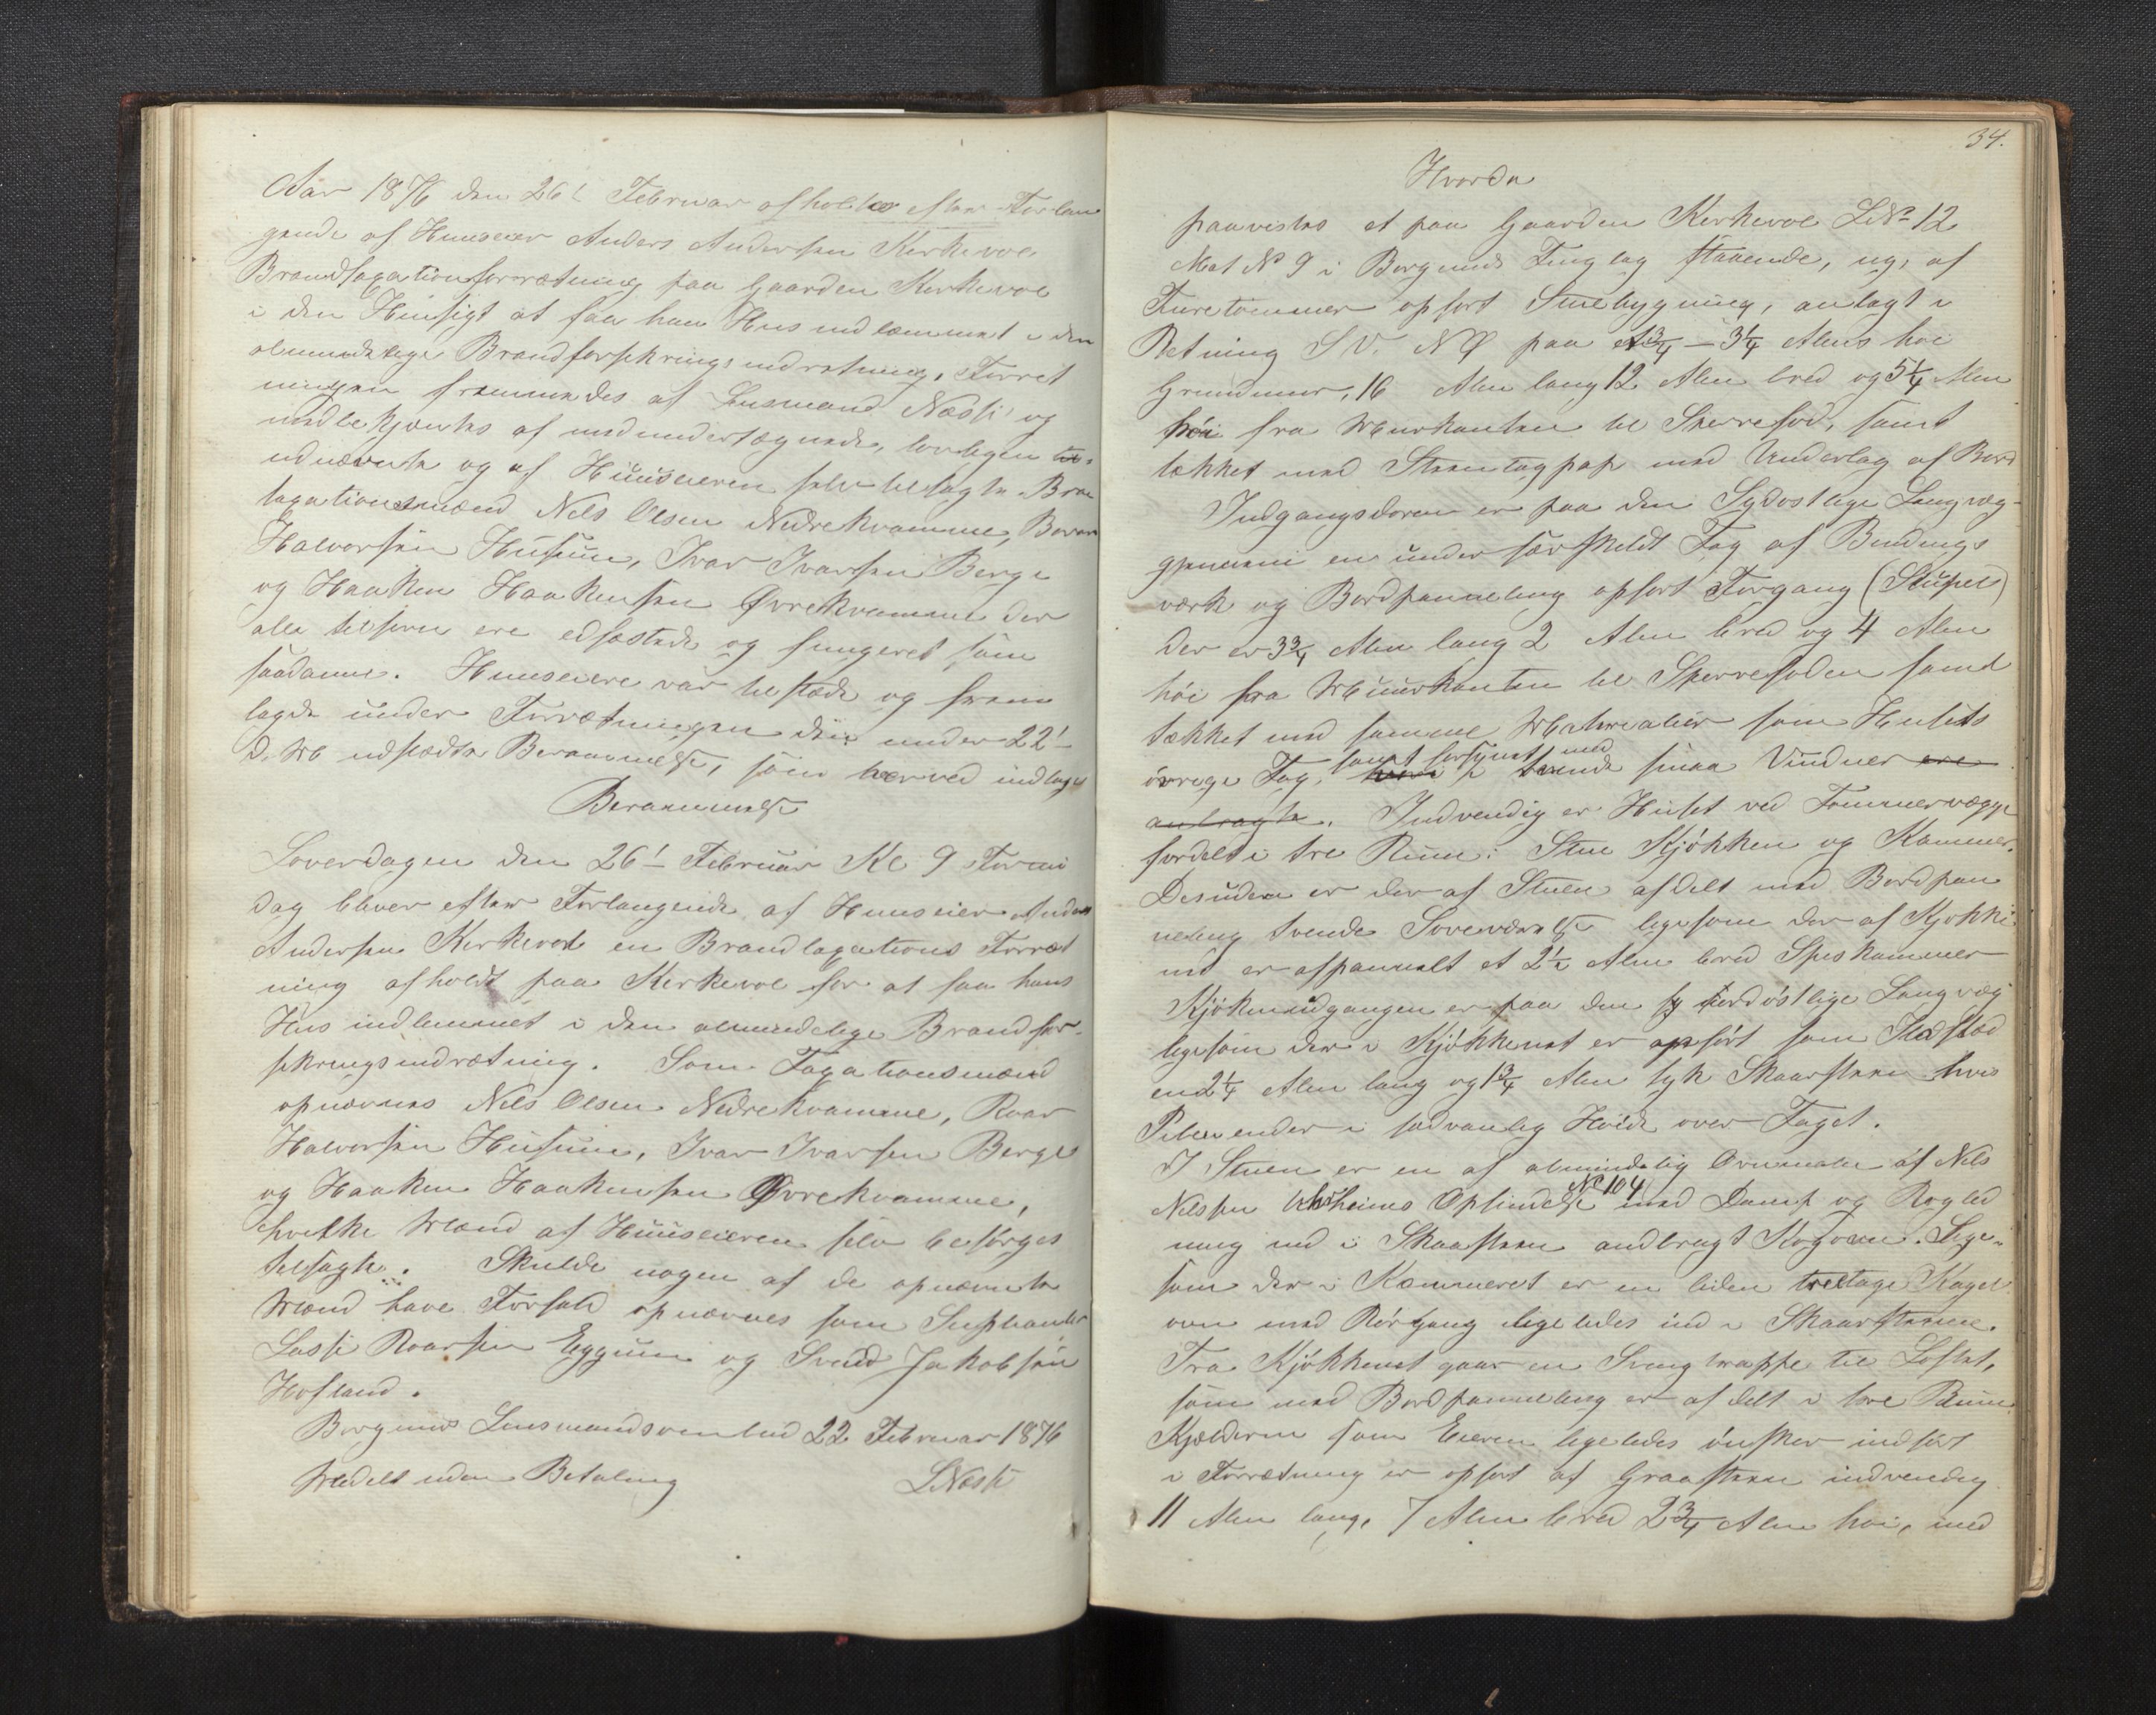 Aar 1876 den 26t Februar afholtes efter Forlan
gende af Huuseier Anders Andersen Kirkevol
Brandtaxationsforretning paa Gaarden Kirkevol
i den Hensigt at faa hans Hus indlemmet i den
almindelige Brandforsikringsindretning. Forret
ningen fremmedes af Lensmand Næsse og
medbekjentes af medundertegnede, lovligen
udnævnte og af Huuseieren selv tilsagte Bran
taxationsmænd Nils Olsen Nedrekvamme, Roar
Halvorsen Husum, Ivar Ivarsen Berge
og Haaken Haakensen Øvrekvamme der
alle tilforn ere edfæstede og fungeret som
saadanne. Huuseiere var tilstede og frem
lagde under Forretningen den under 22t
d. M udstedte Berammelse, som herved indtages
Berammelse
Løverdagen den 26t Februar Kl 9 Formid
dag bliver efter Forlangende af Huuseier Anders
Andersen Kirkevol en Brandtaxations Forret
ning afholdt paa Kirkevol for at faa hans
Hus indlemmet i den almindelige Brandfor-
sikringsindretning. Som Taxationsmænd
opnævnes Nils Olsen Nedrekvamme, Roar
Halvorsen Husum, Ivar Ivarsen Berge
og Haaken Haakensen Øvrekvamme,
hvilke Mænd af Huuseieren selv besørges
tilsagte. Skulde nogen af de opnævnte
Mænd have Forfald opnævnes som Suplianter
Lasse Roarsen Eggum og Svend Jakobsen
Hofland.
Borgunds Lensmandsombud 22 Februar 1876
Meddelt uden Betaling LNæsse
34.
Hvorda
paavistes et paa Gaarden Kirkevol LNo 12
Mat No 9 i Borgunds Tinglag staaende, ny, af
Furetømmer opført Stuebygning, anlagt i
Retning S V. N Ø paa 1 3/4 – 3 1/4 Alens høi
Grundmur, 16 Alen lang 12 Alen bred og 5 1/4 Alen
høi fra Muurkanten til Sperrefod, samt
tækket med Steentagpap med Underlag af Bord
Indgangsdøren er paa den Sydostlige Langvæg
gjennem en under særskildt Tag af Bindings
værk og Bordpanneling opført Forgang (Skúpel)
der er 3 3/4 Alen lang 2 Alen bred og 4 Alen
høi fra Muurkanten til Sperrefoden samt
tækket med samme Materialier som Husets
øvrige Tag, samt forsynet med tvende smaa Vinduer ere
anbragte. Indvendig er Huset ved Tømmervægge
fordelt i tre Rum: Stue Kjøkken og Kammer.
Desuden er der af Stuen afdelt med Bordpan
neling tvende Soveværelser ligesom der af Kjøkke
net er afpannelt et 2 1/2 Alen bred Speskammer
Kjøkkenindgangen er paa den nordøstlige Langvæg
ligesom der i Kjøkkenet er opført som Ildsted
en 2 1/4 Alen lang og 1 3/4 Alen tyk Skaarsteen hvis
Pibe ender i sædvanlig Høide over Taget.
I Stuen er en af almindelig Ovnmaler af Nils
Nilsen Opfindelse No 104 med Damp og Røgled
ning ind i Skaarsteen andbragt Kogeovn. Lige-
som der i Kammeret er en liden treetage Kagel
ovn med Rørgang ligeledes ind i Skaarsteene.
Fra Kjøkkenet gaar en Svingtrappe til Loftet,
som med Bordpanneling er afdelt i tre Rum
Kjelderen som Eieren ligeledes ønsker indført
i Forretning er opført af Graasteen indvendig
11 Alen lang, 7 Alen bred 2 3/4 Alen høi, med